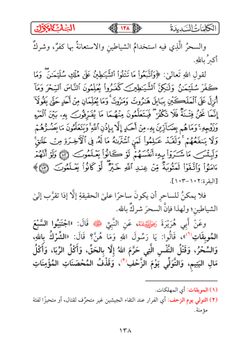 الكلمات السديدة
١٣٨
والسحرُ الَّذِي فيه استخدامُ الشياطينِ والاستعانةُ بها كفرٌ، وشركٌ
أكبرُ باللهِ.
لقولِ اللهِ تَعَالَى: ﴿وَاتَّبَعُوا مَا تَتْلُو الشَّيَاطِينُ عَلَى مُلْكِ سُلَيْمَانَ وَمَا
كَفَرَ سُلَيْمَانُ وَلَكِنَّ الشَّيَاطِينَ كَفَرُوا يُعَلِّمُونَ النَّاسَ السِّحْرَ وَمَا
أُنْزِلَ عَلَى الْمَلَكَيْنِ بِبَابِلَ هَارُوتَ وَمَارُوتَ وَمَا يُعَلِّمَانِ مِنْ أَحَدٍ حَتَّى يَقُولَا
إِنَّمَا نَحْنُ فِتْنَةٌ فَلَا تَكْفُرْ فَيَتَعَلَّمُونَ مِنْهُمَا مَا يُفَرِّقُونَ بِهِ بَيْنَ الْمَرْءِ
وَزَوْجِهِ وَمَا هُمْ بِضَارِّينَ بِهِ مِنْ أَحَدٍ إِلَّا بِإِذْنِ اللَّهِ وَيَتَعَلَّمُونَ مَا يَضُرُّهُمْ
وَلَا يَنْفَعُهُمْ وَلَقَدْ عَلِمُوا لَمَنِ اشْتَرَاهُ مَا لَهُ فِي الْآخِرَةِ مِنْ خَلَاقٍ
وَلَبِئْسَ مَا شَرَوْا بِهِ أَنْفُسَهُمْ لَوْ كَانُوا يَعْلَمُونَ ۝ وَلَوْ أَنَّهُمْ
آمَنُوا وَاتَّقَوْا لَمَثُوبَةٌ مِنْ عِنْدِ اللَّهِ خَيْرٌ لَوْ كَانُوا يَعْلَمُونَ﴾
[البقرة: ١٠٢-١٠٣].
فلا يمكنُ للساحرِ أن يكونَ ساحرًا على الحقيقةِ إلَّا إذا تقرَّب إلى
الشياطينِ؛ ولهذا فإنَّ السحرَ شركٌ باللهِ.
وعن أبي هُرَيْرَةَ رضي الله عنه عَنِ النَّبِيِّ ﷺ قَالَ: «اجْتَنِبُوا السَّبْعَ
المُوبِقَاتِ (١)»، قَالُوا: يَا رَسُولَ اللهِ وَمَا هُنَّ؟ قَالَ: «الشِّرْكُ بِاللهِ،
وَالسِّحْرُ، وَقَتْلُ النَّفْسِ الَّتِي حَرَّمَ اللهُ إِلَّا بِالحَقِّ، وَأَكْلُ الرِّبَا، وَأَكْلُ
مَالِ اليَتِيمِ، وَالتَّوَلِّي يَوْمَ الزَّحْفِ (٢)، وَقَذْفُ المُحْصَنَاتِ المُؤْمِنَاتِ
(١) الموبقات: أي المهلكات.
(٢) التولي يوم الزحف: أي الفرار عند التقاء الجيشين غير متحرِّف لقتال، أو متحيزًا لفئة
مؤمنة.
١٣٨